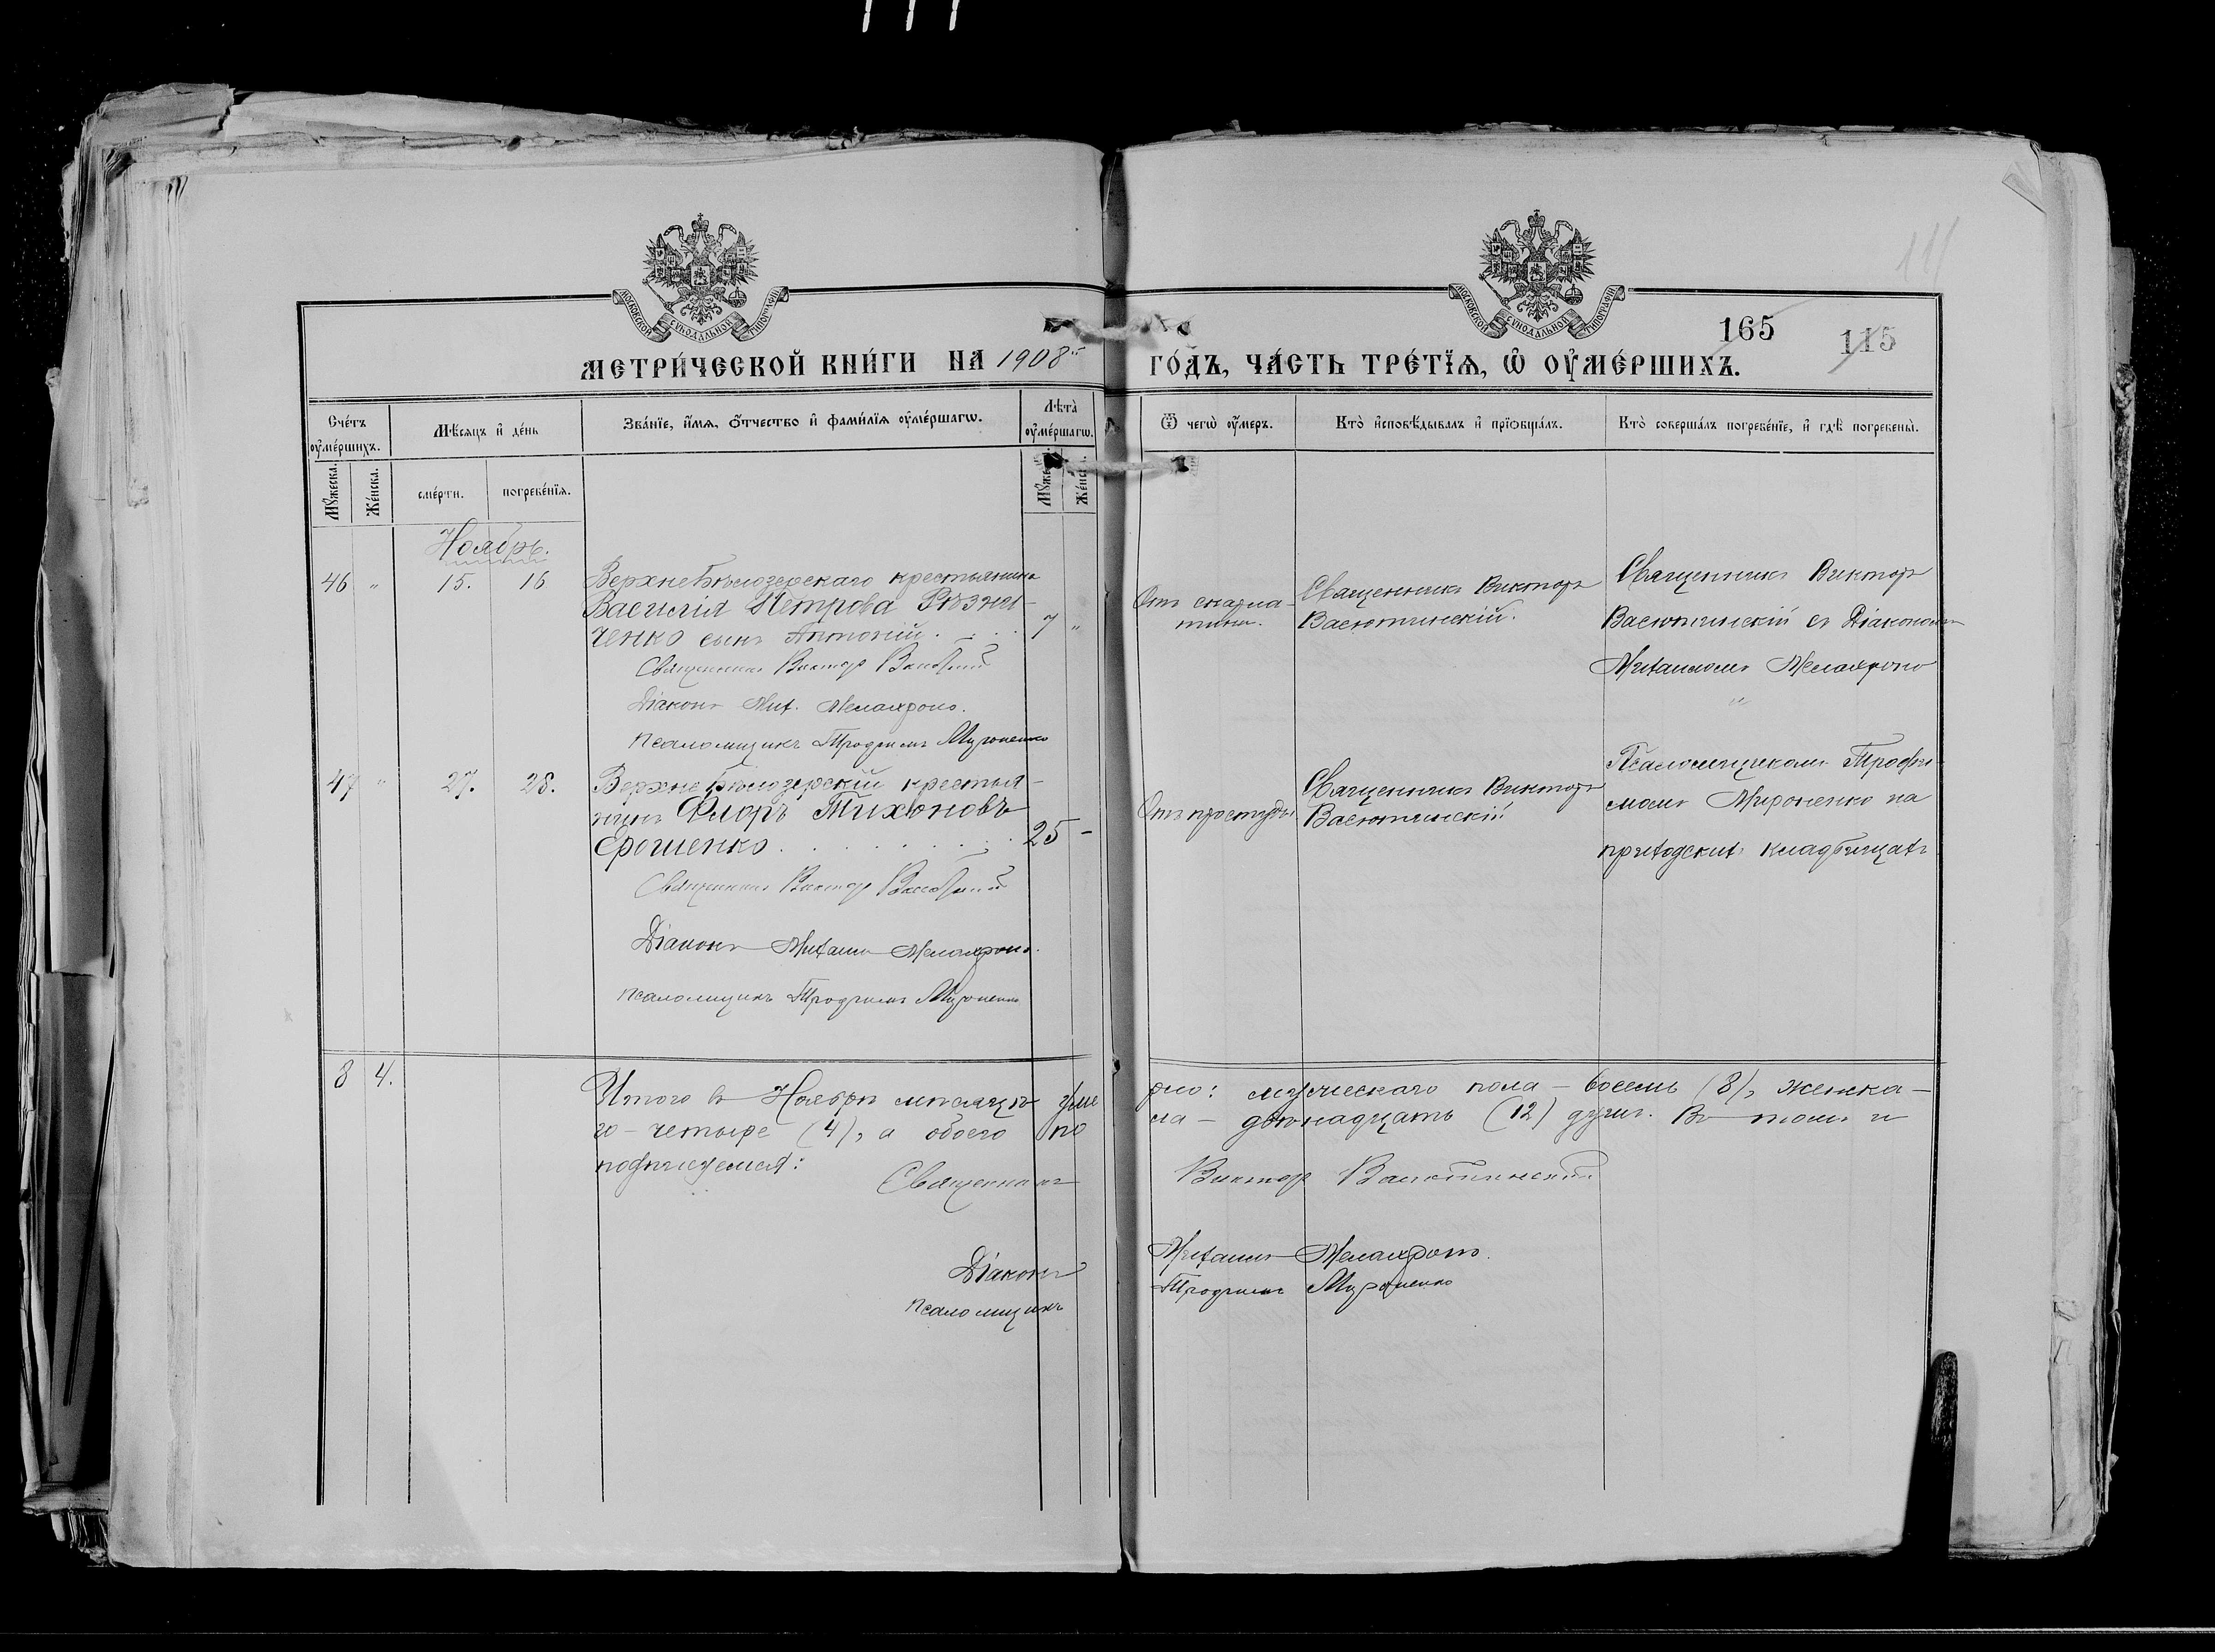 111
МОСКОВСКОЙ СѴНОДАЛЬНОЙ ТИПОГРАФІИ
МОСКОВСКОЙ СѴНОДАЛЬНОЙ ТИПОГРАФІИ
165
115
МЕТРИ́ЧЕСКОЙ КНИ́ГИ НА 1908
ГО́ДЪ, ЧА́СТЬ ТРЕ́ТЇѦ, Ѽ ОУ҆МЕ́РШИХЪ.
Сче́тъ оу҆ме́ршихъ.
Мꙋ́жеска.
Же́нска.
Мѣ́сяцъ и҆ де́нь
сме́рти.
погребе́нїѧ.
Зва́нїе, и҆́мѧ, ѻ҆́тчество и҆ фами́лїѧ оу҆ме́ршагѡ.
Лѣ́та оу҆ме́ршагѡ.
Мꙋ́жеска.
Же́нска.
Ѿ чегѡ̀ оу҆́меръ.
Кто̀ и҆сповѣ́дывалъ и҆ прїѡбща́лъ.
Кто̀ соверша́лъ погребе́нїе, и҆ гдѣ̀ погребены̀.
Ноябрь.
46 " 15. 16
ВерхнеБѣлозерскаго крестьянина
Василія Петрова Рѣзни-
ченко сынъ Антоній. . . . 7 "
Священникъ Викторъ
Діаконъ Мих. Мелахроно.
Псаломщикъ Трофимъ Мироненко
Отъ скарла-
тины.
Священникъ Викторъ
Васютинскій.
Священникъ Викторъ
Васютинскій съ Діакономъ
Михаиломъ Мелахроно
"
47 " 27. 28.
Верхнебѣлозерскій крестья-
нинъ Флоръ Тихоновъ
Ерошенко . . . . . . . 25 -
Священникъ Викторъ
Діаконъ Михаилъ Мелахроно.
Псаломщикъ Трофимъ Мироненко
Отъ простуды
Священникъ Викторъ
Васютинскій
Псаломщикомъ Трофи-
момъ Мироненко на
приходскихъ кладбищахъ
8 4.
Итого въ Ноябрѣ мѣсяцѣ умe
рло: мужескаго пола - восемь (8), женска-
го - четыре (4), а обоего по
ла - двѣнадцать (12) душъ. Въ томъ и
подписуемся:
Священникъ Викторъ Васютинскій
Діаконъ Михаилъ Мелахроно.
Псаломщикъ Трофимъ Мироненко